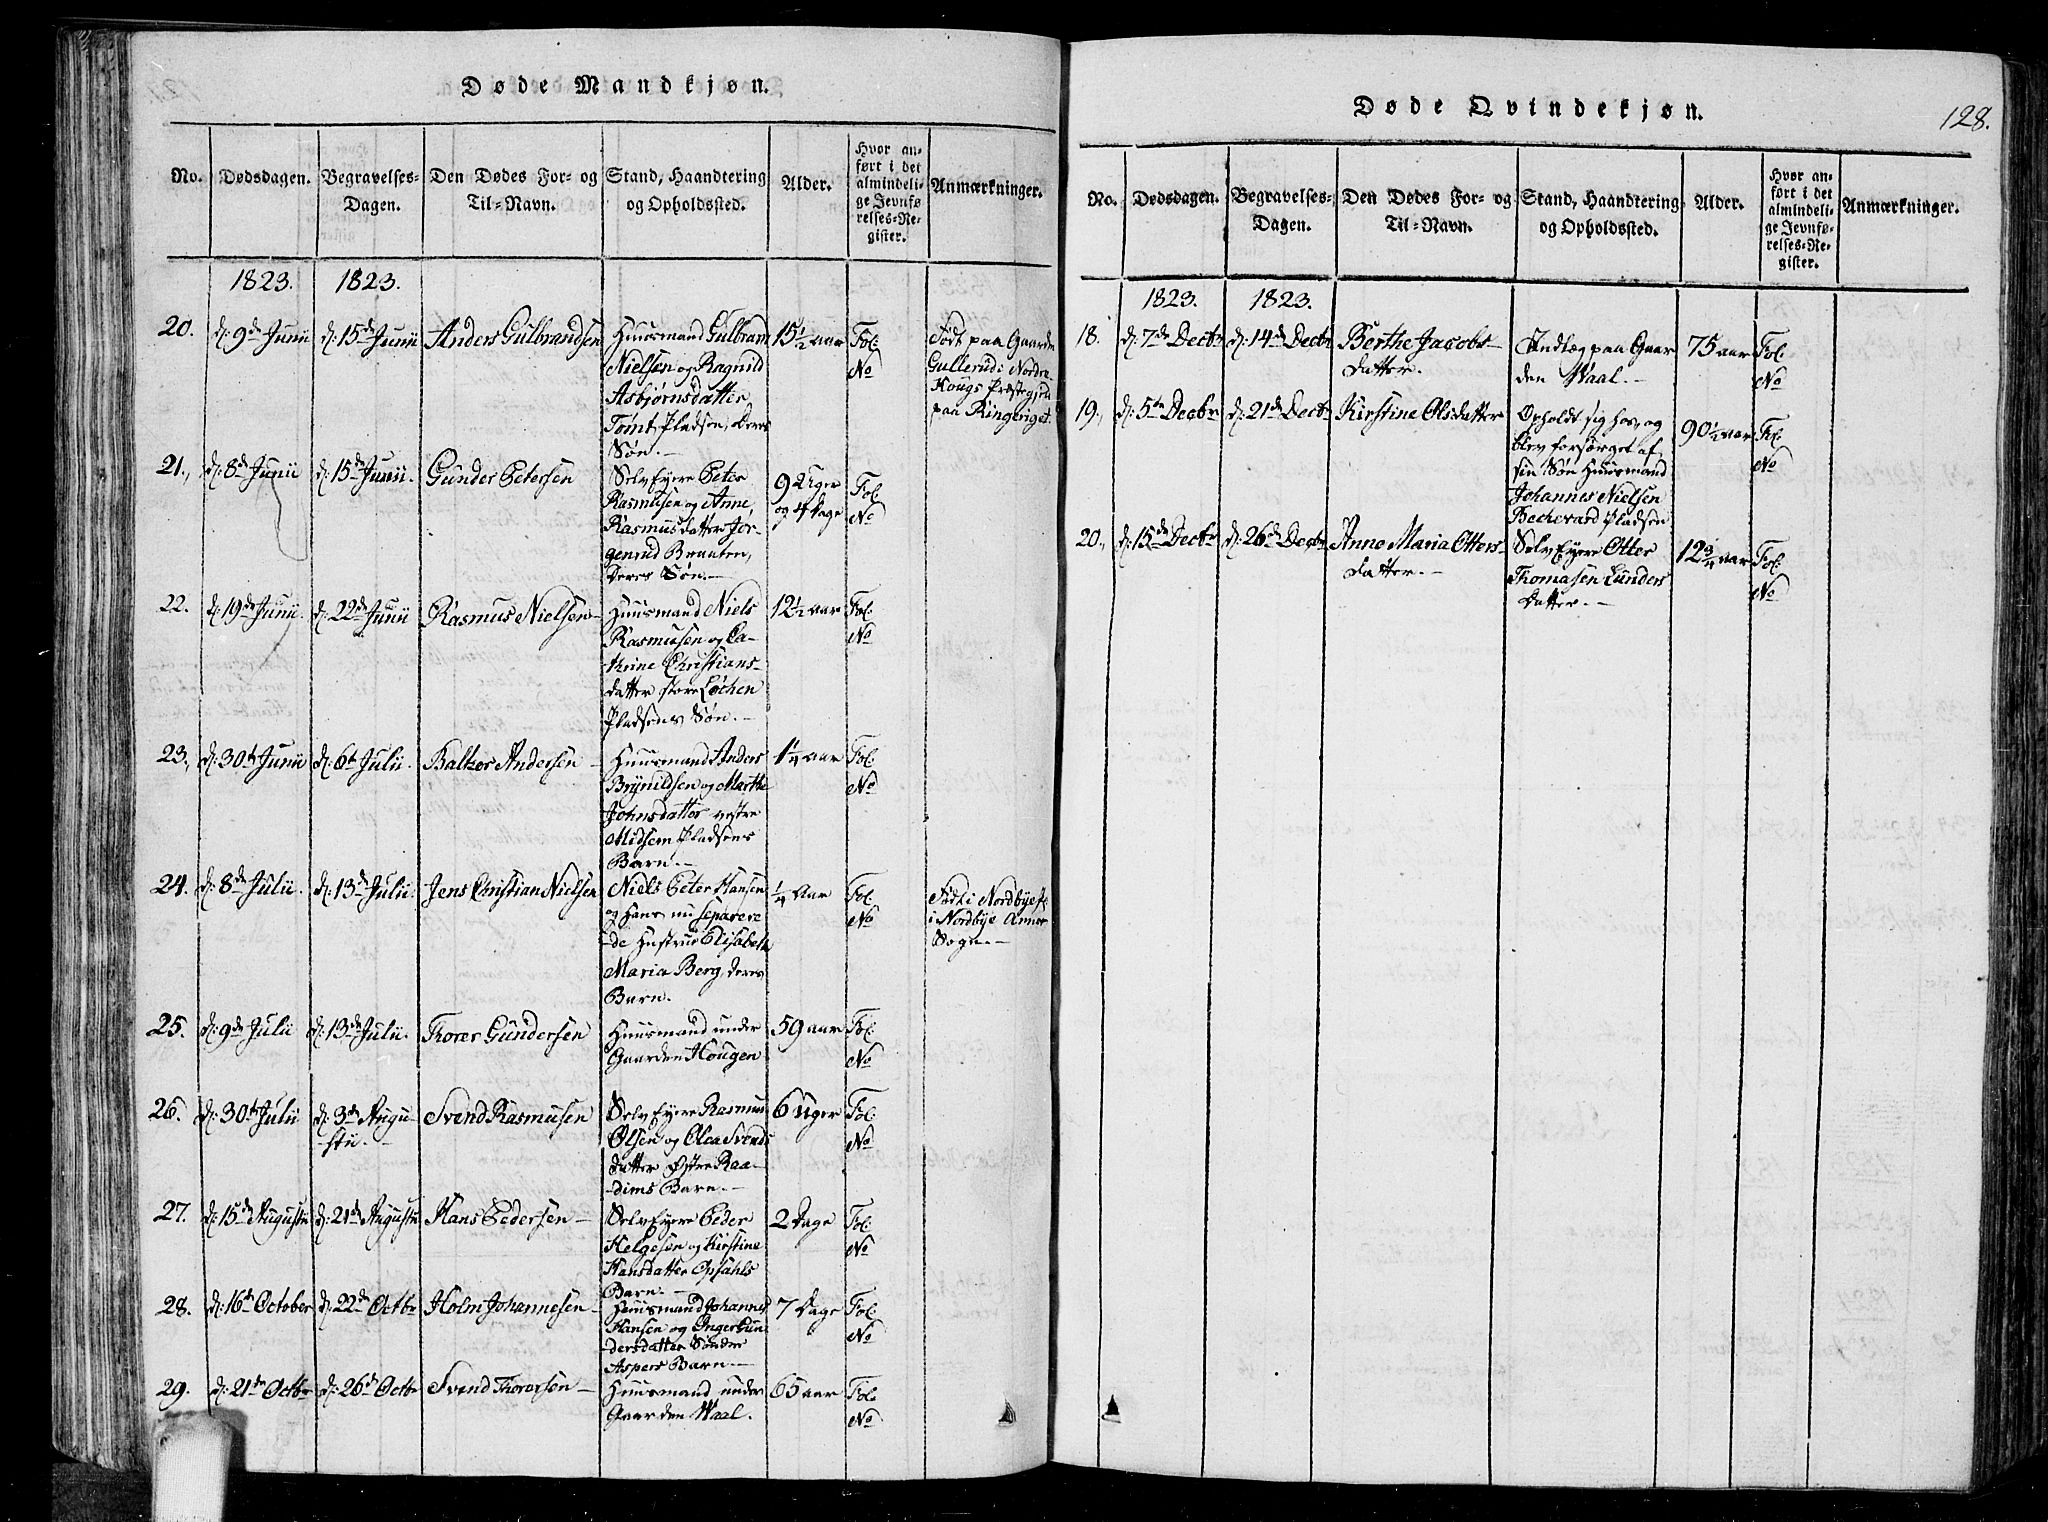 Døde Mandkjøn.
No.
Dødsdagen.
Begravelses-
Dagen.
Den Dødes For- og
Til-Navn.
Stand, Haandtering
og Opholdssted.
Alder.
Hvor an-
ført i det
almindeli-
ge Jevnfø-
relses-Re-
gister.
Anmærkninger.
1823.
1823.
20.
d: 9de Junii
d: 15de Junii
Anders Gulbrandsen
Huusmand Gulbrand
Nielsen og Ragnid
Asbjørnsdatter
Tømt Pladsen, deres
Søn.-
15½ aar
Fol.
No
Født paa Gaarden
Gullerud i Nordre
Hougs Præstegjeld
paa Ringeriget.
21.
d: 8de Junii
d: 15de Junii.
Gunder Petersen
SelvEyere Peter
Rasmusen og Anne
Rasmusdatter Jør-
genrud Braaten,
deres Søn.-
9 Uger
og 4 Dage
Fol.
No
22.
d: 19de Junii.
d: 22de Junii
Rasmus Nielsen-
Huusmand Niels
Rasmusen og Ca-
thrine Christians-
datter store Løchen
Pladsens Søn.-
12½ aar
Fol.
No
23.
d: 30te Junii
d: 6te Julii.
Baltzer Andersen-
Huusmand Anders
Brynildsen og Marthe
Johnsdatter vestre
Midsem Pladsens
Barn.-
1¼ aar
Fol.
No
24.
d: 8de Julii.
d: 13de Julii.
Jens Christian Nielsen
Niels Peter Hansen
og Hans nu separere
de Hustrue Elisabeth
Maria Berg, deres
Barn.
¼ Aar
Fol.
No
Født i
i Nordbye Annex
Sogn.-
25.
d: 9de Julii
d: 13de Julii.
Thorer Gundersen
Huusmand under
Gaarden Hougen
59 aar
Fol.
No
26.
d: 30te Julii
d: 3de Augu-
-stii.-
Svend Rasmusen
SelvEyere Rasmus
Olsen og Olea Svends
datter Østre Raa-
-dims Barn.-
6 Uger
Fol.
No
27.
d: 15de Augustii
d: 21de Augustii
Hans Pedersen-
SelvEyere Peder
Helgesen og Kirstine
Hansdatter Opsahls
Barn.-
2 Dage
Fol.
No
28.
d: 16de October
d: 22de Octbr
Holm Johannesen-
Huusmand Johannes
Hansen og Inger Gun
dersdatter Søndre
Aspers Barn-
7 Dage
Fol.
No
29.
d: 21de Octbr
d: 26de Octbr
Svend Thorersen-
Huusmand under
Gaarden Waal.
65 aar
Fol.
No
Døde Qvindekjøn.
128.
No.
Dødsdagen.
Begravelses-
Dagen.
Den Dødes For- og
Til-Navn.
Stand, Haandtering
og Opholdssted.
Alder.
Hvor an-
ført i det
almindeli-
ge Jevnfø-
relses-Re-
gister.
Anmærkninger.
1823.
1823.
18.
d: 7de Decbr
d: 14de Decbr
Berthe Jacobs-
datter.
Indlæg paa Gaar
den Waal.-
75 aar
Fol.
No
19.
d: 5te Decbr
d: 21de Decbr
Kirstine Olsdatter
Opholdt sig hos, og
blev forsørget af
sin Søn Huusmand
Johannes Nielsen
Bechevard Pladsen
90½ aar
Fol.
No
20.
d: 15de Decbr
d: 26de Decbr
Anne Maria Otters-
datter.-
SelvEyere Otter
Thomasen Lunders
Datter.-
12¾ aar
Fol.
No